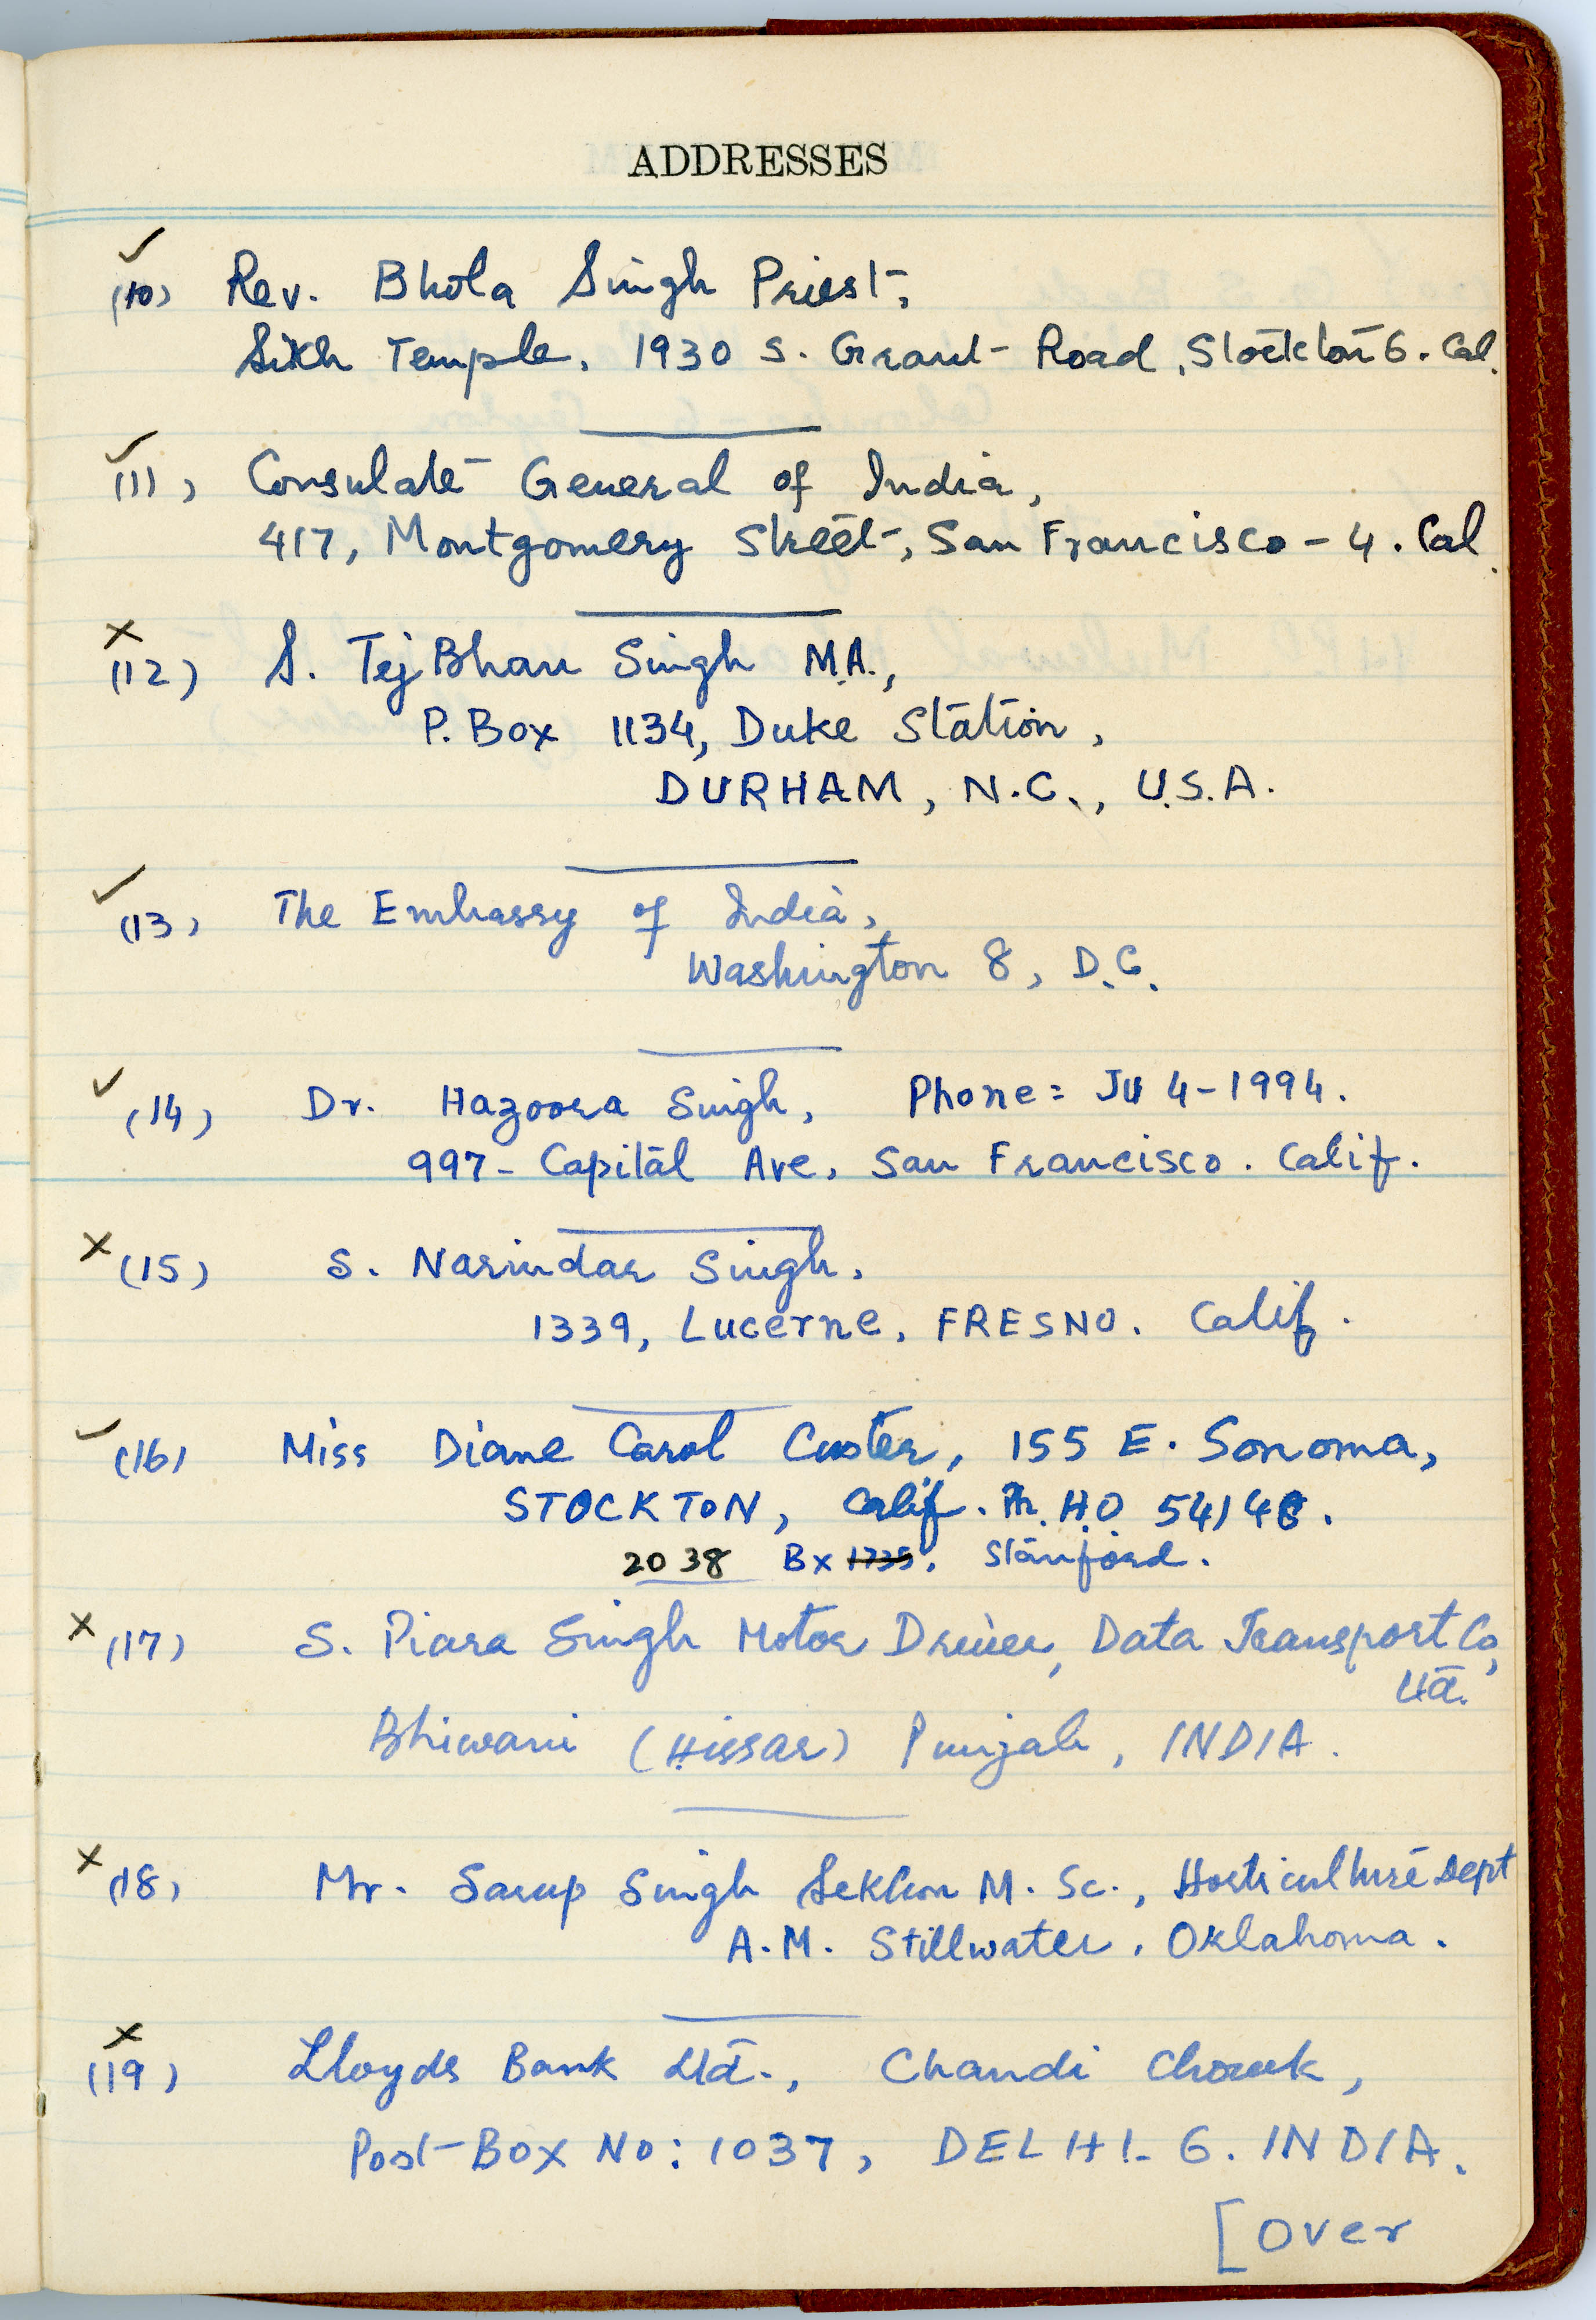 ADDRESSES
✓
(10) Rev. Bhola Singh Priest,
Sikh Temple, 1930 S. Grant Road, Stockton 6. Cal.
✓
(11) Consulate General of India,
417, Montgomery Street, San Francisco - 4. Cal.
x
(12) S. Tej Bhan Singh M.A.,
P. Box 1134, Duke Station,
DURHAM, N.C., U.S.A.
✓
(13) The Embassy of India,
Washington 8, D.C.
✓ (14) Dr. Hazoora Singh, Phone = JU 4-1994.
997- Capital Ave, San Francisco. Calif.
x (15) S. Narindar Singh,
1339, Lucerne, FRESNO. Calif.
✓ (16) Miss Diane Carol Custer, 155 E. Sonoma,
STOCKTON, Calif. Ph. HO 54146.
2038 Bx 1735, Stanford.
x (17) S. Piara Singh Motor Driver, Data Transport Co,
Ltd.
Bhiwani (Hissar) Punjab, INDIA.
x (18) Mr. Sarup Singh Sekhon M. Sc., Horticulture Dept
A.M. Stillwater, Oklahoma.
x
(19) Lloyds Bank Ltd., Chandi Chowk,
Post-Box No: 1037, DELHI-6. INDIA.
[Over